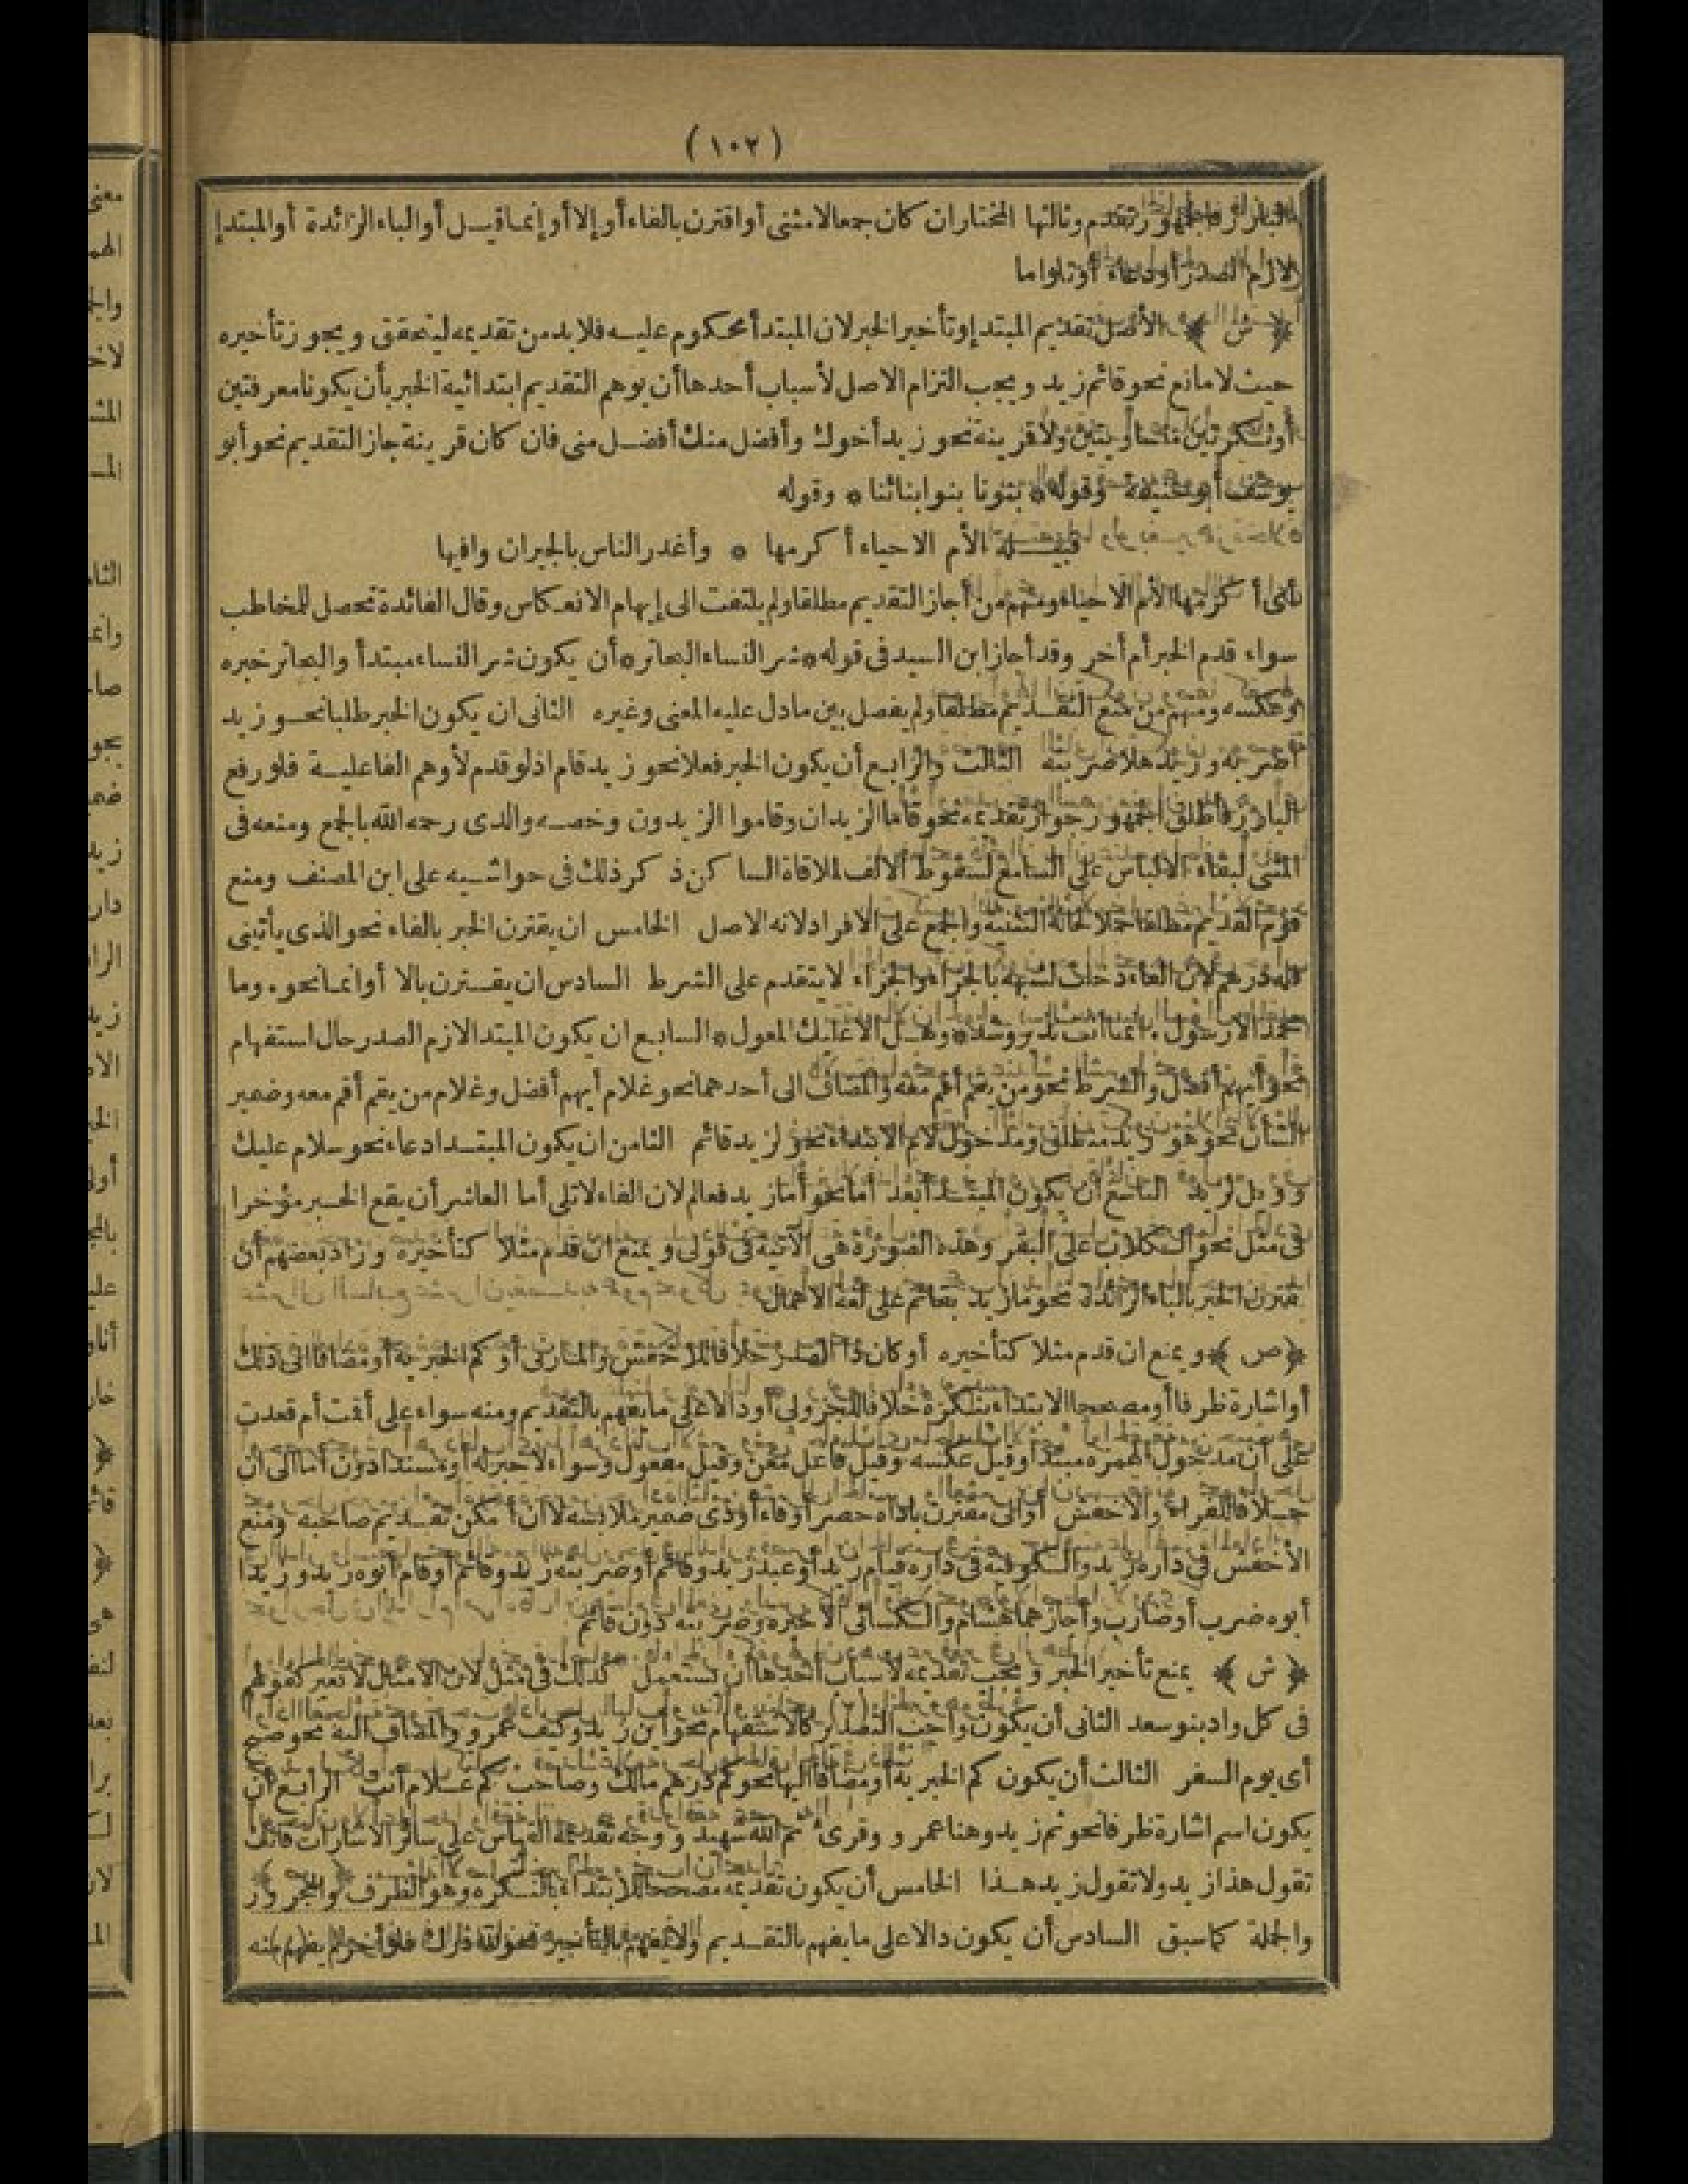 (١٠٢)
البارز فالجمهور تقدم وثالثها المختاران كان جمعا لامثنى أو اقترن بالفاء أو إلا أو إنما قيل أو الباء الزائدة أو المبتدإ
لازم الصدر أو دعاء أو تلو اما
﴿ش﴾ الأصل تقديم المبتدإ وتأخير الخبر لان المبتدأ محكوم عليه فلابد من تقديمه ليتحقق ويجوز تأخيره
حيث لامانع نحو قائم زيد ويجب التزام الاصل لأسباب أحدها أن يوهم التقديم ابتدائية الخبر بأن يكونا معرفتين
أو نكرتين متساويتين ولاقرينة نحو زيد أخوك وأفضل منك أفضل منى فان كان قرينة جاز التقديم نحو أبو
يوسف أبو حنيفة وقوله * بنونا بنو ابنائنا * وقوله
قبيلة الأم الاحياء أكرمها * وأغدر الناس بالجيران وافيها
أى أكرمها الأم الاحياء ومنهم من أجاز التقديم مطلقا ولم يلتفت الى إيهام الانعكاس وقال الفائدة تحصل للمخاطب
سواء قدم الخبر أم أخر وقد أجاز ابن السيد فى قوله * شر النساء البحاتر * أن يكون شر النساء مبتدأ والبحاتر خبره
وعكسه ومنهم من منع التقديم مطلقا ولم يفصل بين مادل عليه المعنى وغيره الثانى ان يكون الخبر طلبا نحو زيد
اضربه وزيد هلاضربته الثالث والرابع أن يكون الخبر فعلا نحو زيد قام اذ لو قدم لأوهم الفاعلية فلو رفع
البارز فأطلق الجمهور جواز تقديمه نحو قاما الزيدان وقاموا الزيدون وخصه والدى رحمه الله بالجمع ومنعه فى
المثنى لبقاء الالباس على السامع لسقوط الالف لملاقاة الساكن ذكر ذلك فى حواشيه على ابن المصنف ومنع
قوم التقديم مطلقا حملا لحالة التثنية والجمع على الافراد لانه الاصل الخامس ان يقترن الخبر بالفاء نحو الذى يأتينى
فله درهم لأن الفاء دخلت لشبهه بالجزاء والجزاء لايتقدم على الشرط السادس ان يقترن بالا أو انما نحو . وما
محمد الارسول . انما أنت نذير وشذ * وهل الاعليك المعول * السابع ان يكون المبتدا لازم الصدر حال استفهام
نحو أيهم أفضل والشرط نحو من يقم أقم معه والمضاف الى أحدهما نحو غلام أيهم أفضل وغلام من يقم أقم معه وضمير
الشأن نحو هو زيد منطلق ومدخول لام الابتداء نحو لزيد قائم الثامن ان يكون المبتدا دعاء نحو سلام عليك
وويل لزيد التاسع أن يكون المبتدأ بعد أما نحو أما زيد فعالم لان الفاء لاتلى أما العاشر أن يقع الخبر مؤخرا
فى مثل نحو الكلاب على البقر وهذه الصورة هى الآتية فى قولى ويمنع ان قدم مثلا كتأخيره وزاد بعضهم أن
يقترن الخبر بالباء الزائدة نحو ما زيد بقائم على لغة الاهمال
﴿ص﴾ ويمنع ان قدم مثلا كتأخيره أو كان ذا الصدر خلافا للاخفش والمازنى أو كم الخبرية أو مضافا الى ذلك
أو اشارة ظرفا أو مصححا الابتداء بنكرة خلافا للجزولى أو دالا على مايفهم بالتقديم ومنه سواء على أقمت أم قعدت
على أن مدخول الهمزة مبتدأ وقيل عكسه وقيل فاعل مغن وقيل مفعول وسواء لاخبر له أو مسندا دون أما الى أن
خلافا للفراء والاخفش أو الى مقترن باداة حصر أو فاء أو ذى ضمير ملابسه لا ان أمكن تقديم صاحبه ومنع
الأخفش فى داره زيد والكوفية فى داره قيام زيد أو عبد زيد وقائم أو ضربته زيد وقائم أو قام أبوه زيد وزيدا
أبوه ضرب أو ضارب وأجازهما هشام والكسائى الاخيرة وضربته دون قائم
﴿ش﴾ يمنع تأخير الخبر ويجب تقديمه لأسباب أحدها أن يستعمل كذلك فى مثل لان الامثال لا تغير كقولهم
فى كل واد بنو سعد الثانى أن يكون واجب التصدير كالاستفهام نحو أين زيد وكيف عمرو والمضاف اليه نحو صبح
أى يوم السفر الثالث أن يكون كم الخبرية أو مضافا اليها نحو كم درهم مالك وصاحب كم غلام أنت الرابع أن
يكون اسم اشارة ظرفا نحو ثم زيد وهنا عمرو وقرئ ثم الله شهيد ووجه تقديمه القياس على سائر الاشارات فانك
تقول هذا زيد ولا تقول زيد هذا الخامس أن يكون تقديمه مصححا للابتداء بالنكرة وهو الظرف والمجرور
والجملة كما سبق السادس أن يكون دالا على مايفهم بالتقديم ولا يفهم بالتأخير نحو لله درك فلو أخر لم يفهم منه